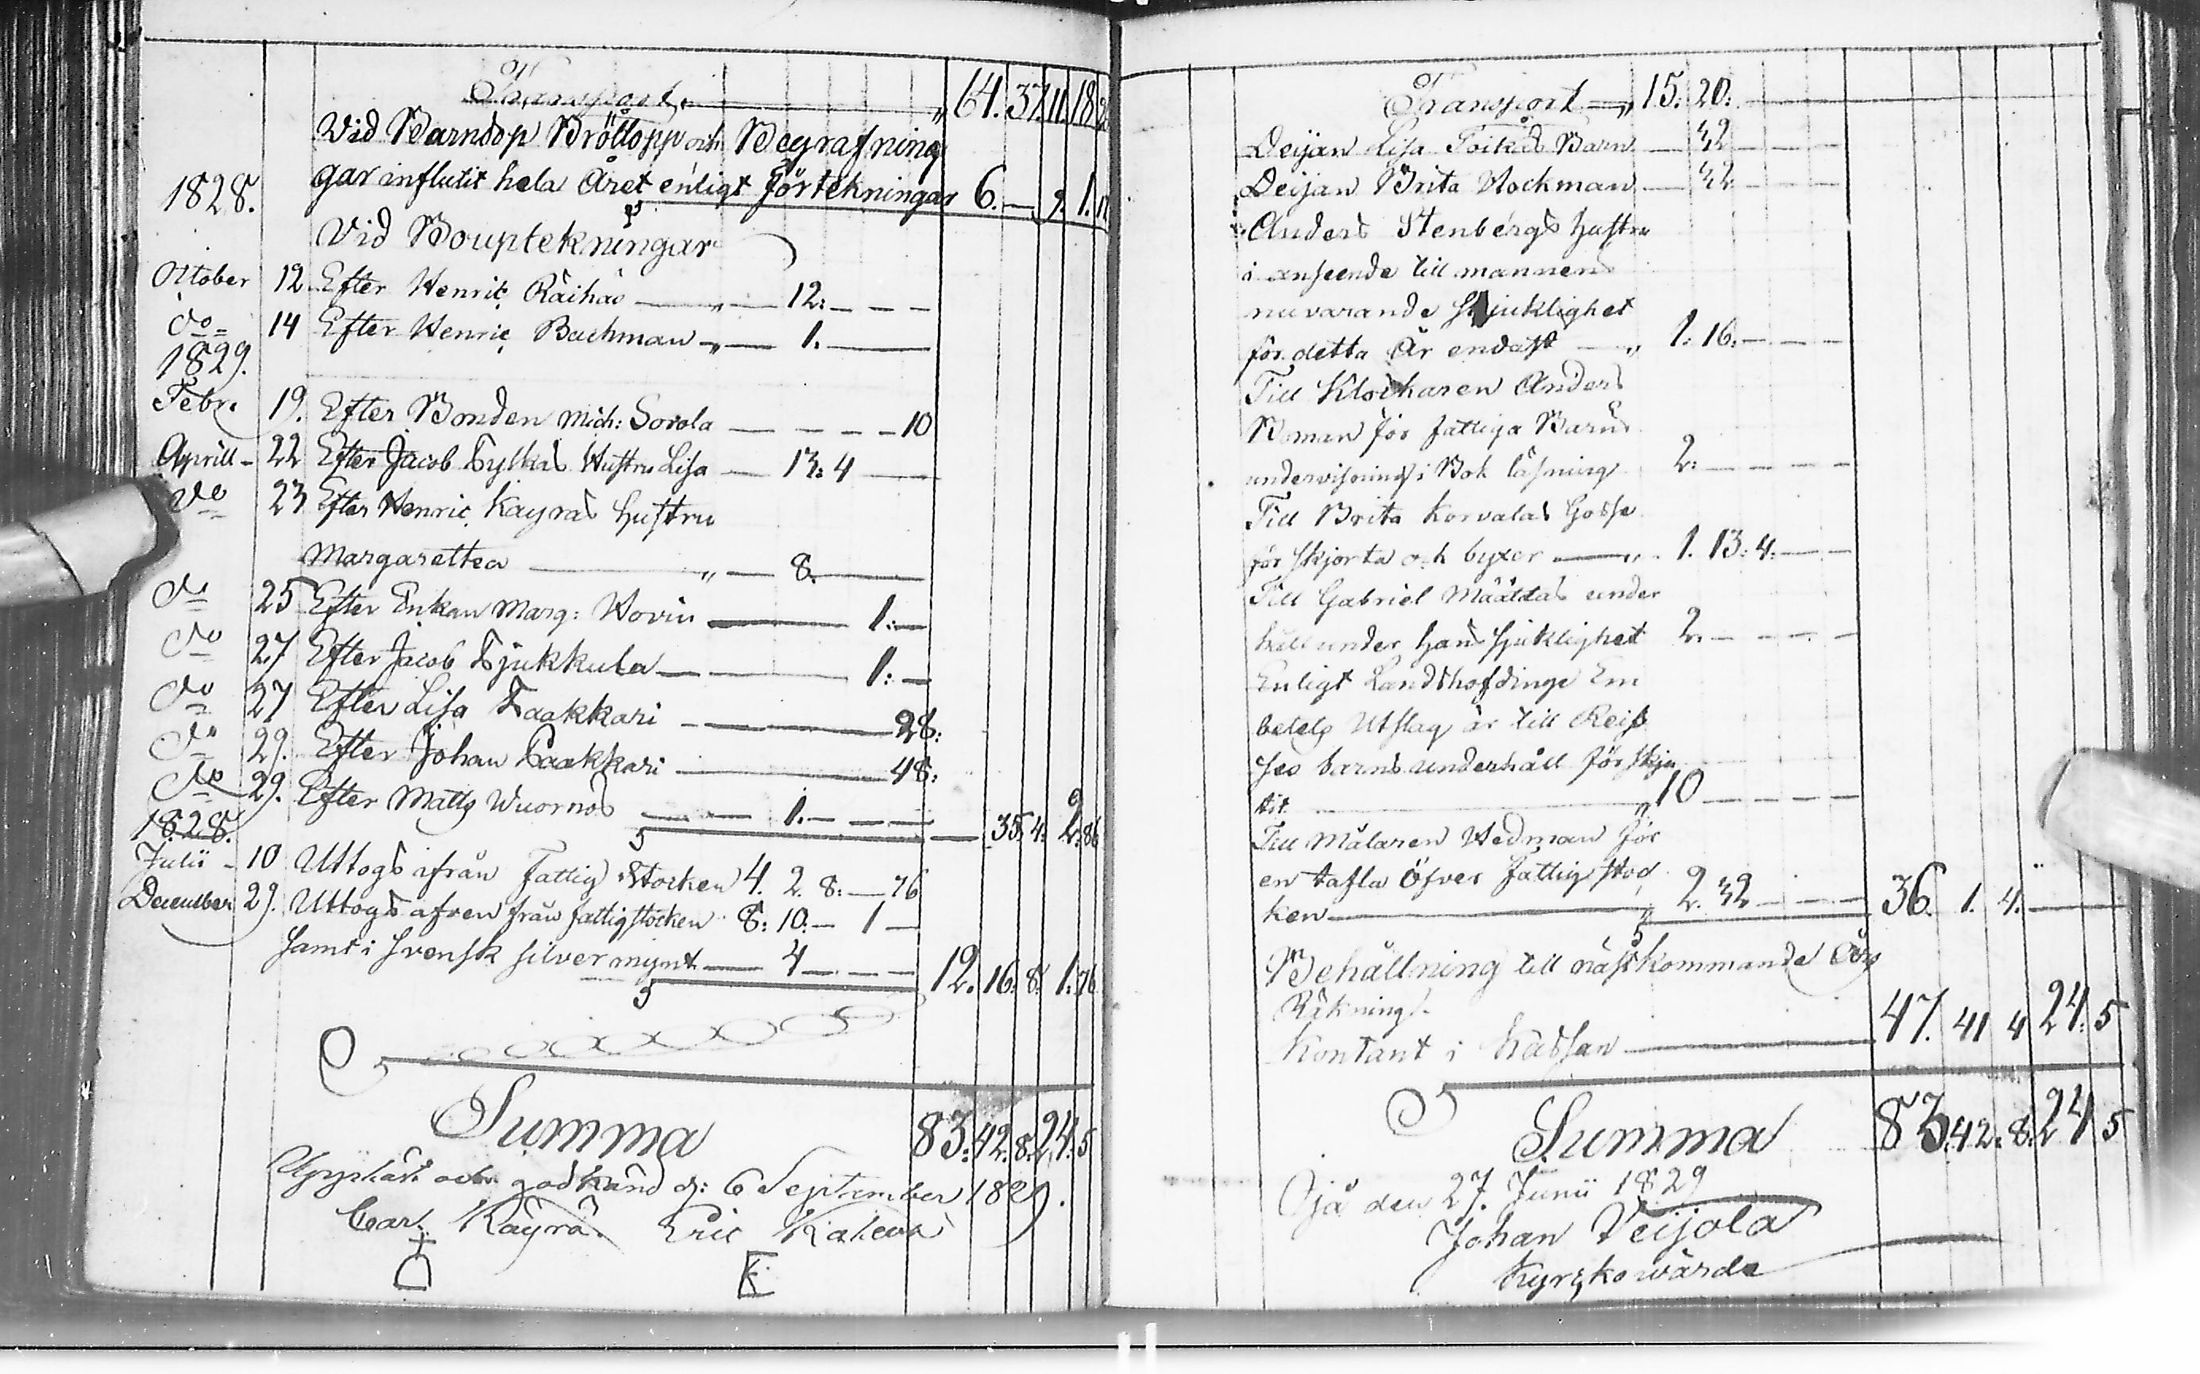 Transport — " 64. 37. 11. 18.
Vid Barndop Bröllopp och Begrafnin
gar influtit hela Året enligt Förtekningar 6. — 9. 1.
1828. Vid Bouptekningar
October 12. Efter Henric Räihäs — " — 12: — — —
do 14 Efter Henric Bachman — " — 1. —
1829.
Febr. 19. Efter Bonden Mich: Sorola — — — — 10
Aprill – 22 Efter Jacob Hustru Lisa — 13: 4 —
do 23 Efter Henric Käyräs Hustru
Margaretha — " — 8. —
do 25 Efter Enkan Marg: Hovin — 1: —
do 27 Efter Jacob — 1: —
do 27 Efter Lisa Paakkari — 28:
do 29. Efter Johan Paakkari — 48:
do 29. Efter Matts Wuornos — 1. — — — 35. 4. 2. 86
1828.
Julii – 10 Uttogs ifrån Fattig Stocken 4. 2. 8: — 76
December 29. Uttogs äfven från fattigstocken 8: 10: — 1 —
samt i svensk silver mynt — 4 — — — 12. 16. 8. 1. 76
Summa 83. 42. 8. 24. 5
och godkänd d: 6 September 1829.
Carl Käyrä Eric Kaleva
Transport — " 15. 20:
Deijan Lisa Poikas Barn — 32
Deijan Brita Hockman — 32
Anders Stenbergs hustru
i anseende till mannens
nuvarande sjuklighet
för detta År endast — " 1. 16: — — —
Till Klockaren Anders
Boman för fattiga Barns
undervisning i Bok läsning 2: — — — —
Till Brita Korvalas Gosse
för skjorta och byxer — " 1. 13: 4: — —
Till Gabriel Määttäs under
håll under hans sjuklighet 2. — — — —
Enligt Landshöfdinge Em
betets Utslag är till Reis
barns underhåll förskju
tit — " 10 — — — —
Till Målaren Hedman för
en tafla Öfver Fattigstoc
ken — " 2. 32 — — — 36. 1. 4. —
Behållning till nästkommande Års
Räkning.
Kontant i Kassan — 47. 41 4 24. 5
Summa 83. 42. 8. 24 5
Ojå den 27. Junii 1829
Johan Veijola
Kyrckowärde